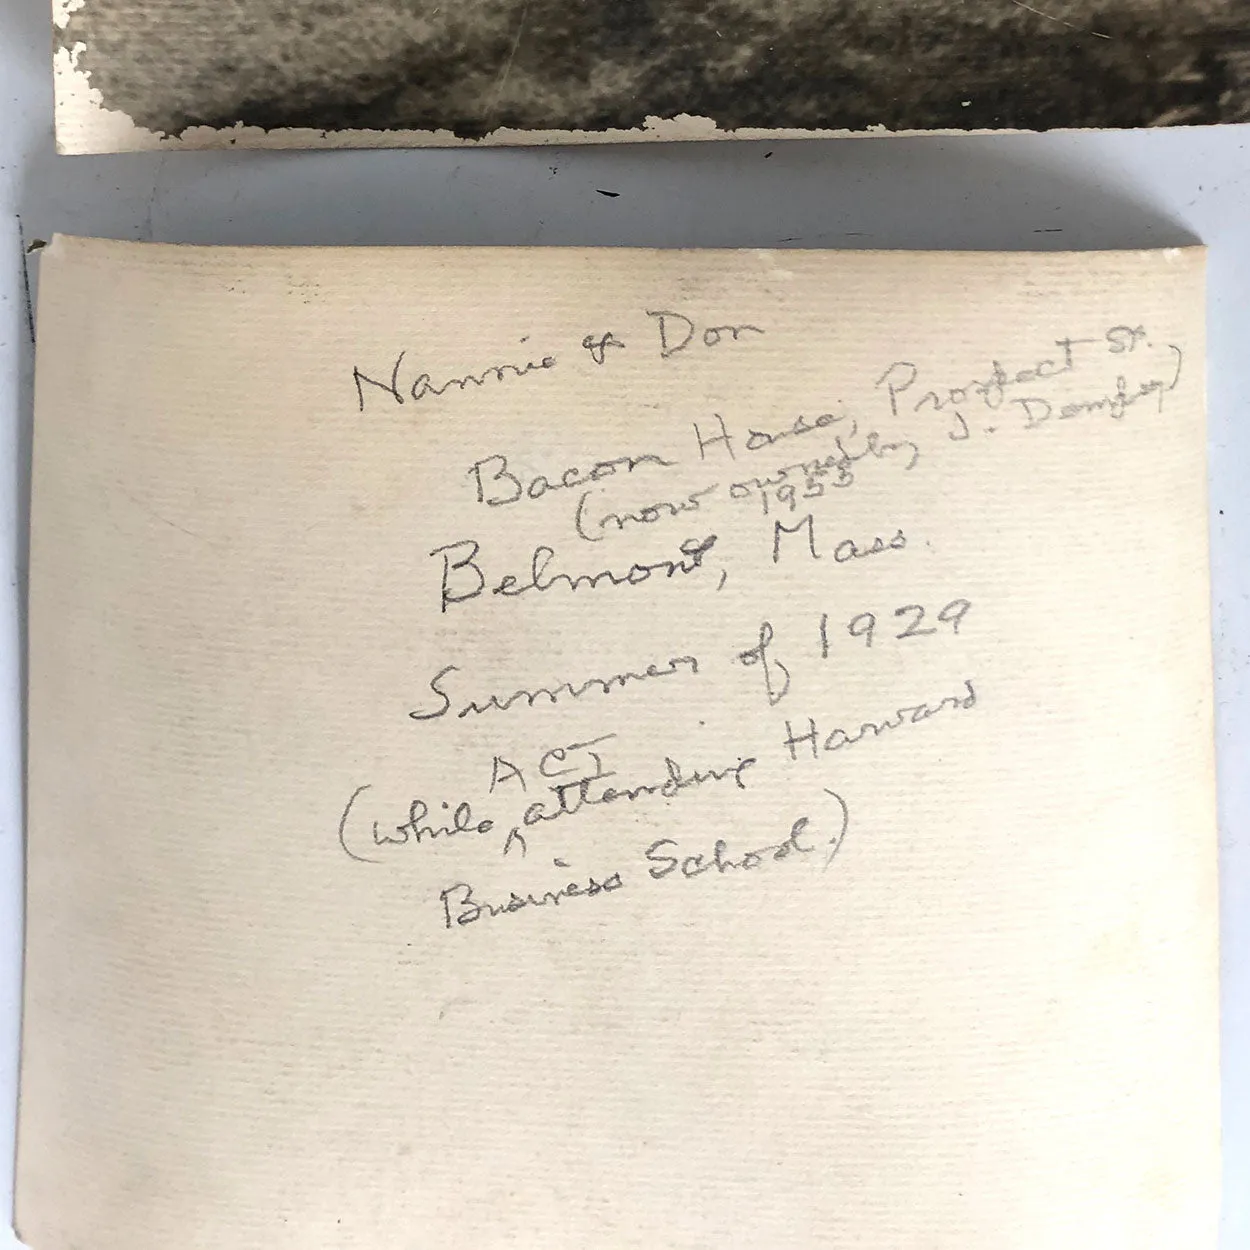 Nannie & Don
Bacon House, Prospect St.
(now owned by J. Dempsey)
1955
Belmont, Mass.
Summer of 1929
ACT
(while ^ attending Harvard
Business School.)